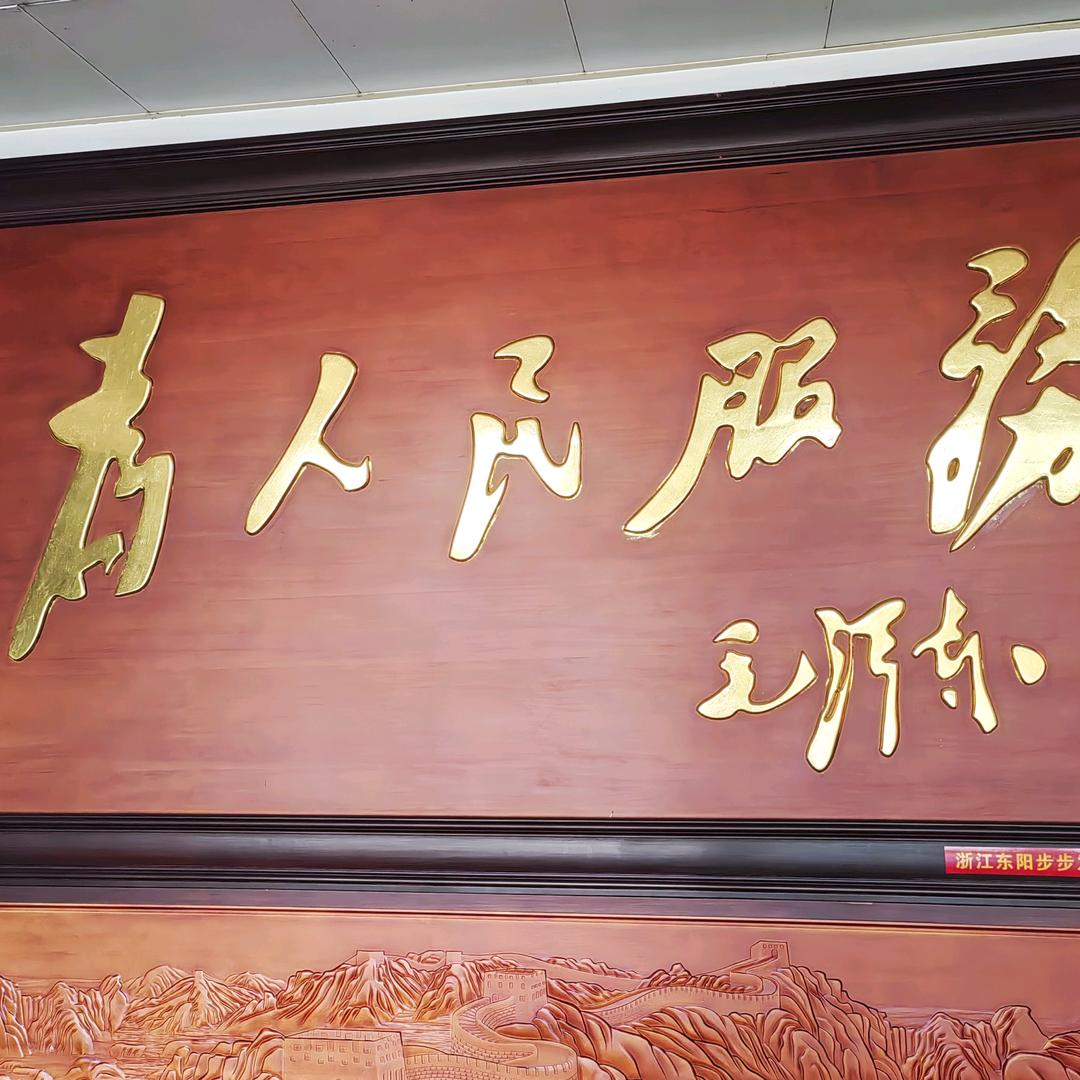 为人民服务
毛泽东
浙江东阳步步